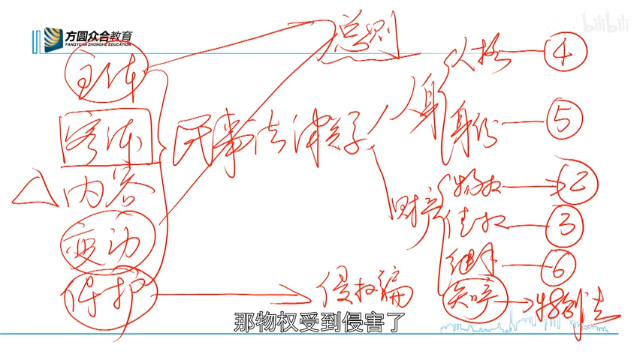 方圆众合教育
FANGYUAN ZHONGHE EDUCATION
bilibili
主体
客体
△内容
变动
保护
民事法律关系
总则
人身
人格 — ④
身份 — ⑤
财产
物权 — ②
债权 — ③
继承 — ⑥
知产 → 特别法
侵权编
那物权受到侵害了